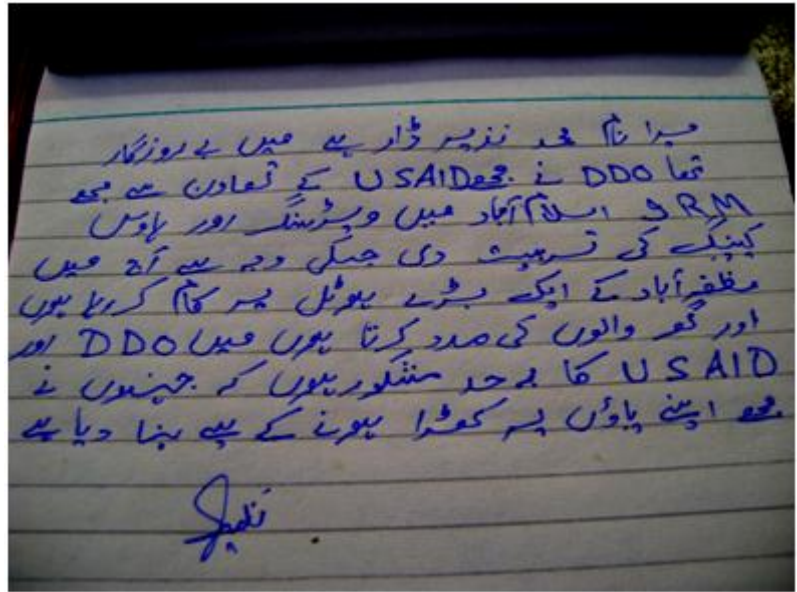 میرا نام محمد نذیر ڈار ہے میں بے روزگار
تھا DDO نے مجھے USAID کے تعاون سے مجھے
RM اسلام آباد میں ویٹرینگ اور ہاوس
کیپنگ کی تربیت دی جسکی وجہ سے آج میں
مظفرآباد کے ایک بڑے ہوٹل پر کام کر رہا ہوں
اور گھر والوں کی مدد کرتا ہوں میں DDO اور
USAID کا بے حد مشکور ہوں کہ جنہوں نے
مجھے اپنے پاؤں پر کھڑا ہونے کے بنا دیا ہے